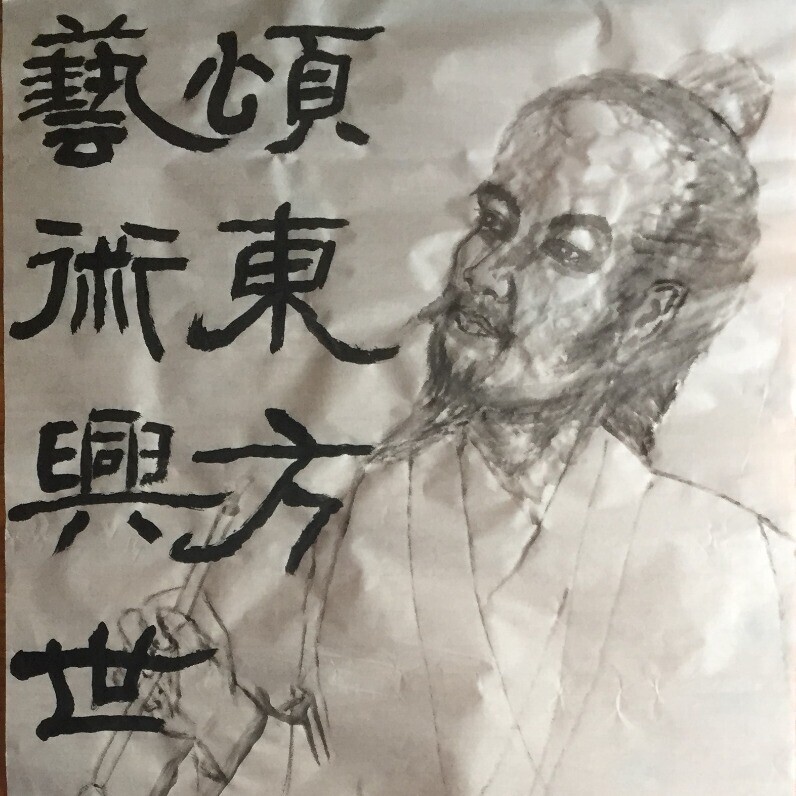 頌東方
藝術興世